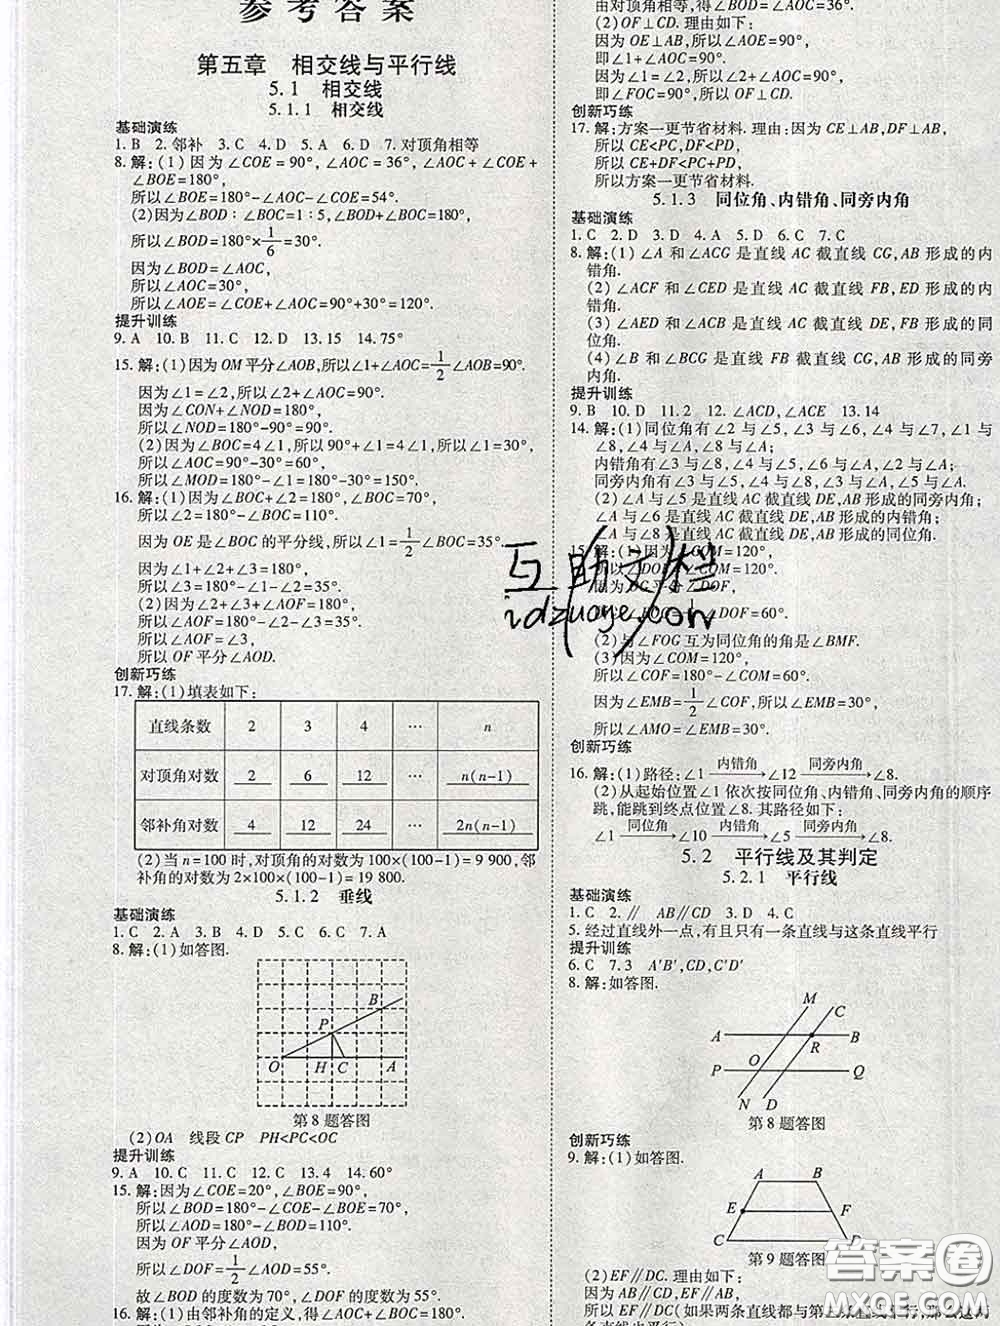 参考答案
第五章 相交线与平行线
5.1 相交线
5.1.1 相交线
基础演练
1.B 2.邻补 3.C 4.D 5.A 6.D 7.对顶角相等
8.解:(1)因为∠COE=90°,∠AOC=36°,∠AOC+∠COE+
∠BOE=180°,
所以∠BOE=180°-∠AOC-∠COE=54°.
(2)因为∠BOD∶∠BOC=1∶5,∠BOD+∠BOC=180°,
所以∠BOD=180°×1/6=30°.
因为∠BOD=∠AOC,
所以∠AOC=30°,
所以∠AOE=∠COE+∠AOC=90°+30°=120°.
提升训练
9.A 10.B 11.C 12.D 13.15 14.75°
15.解:(1)因为OM平分∠AOB,所以∠1+∠AOC=1/2∠AOB=90°.
因为∠1=∠2,所以∠2+∠AOC=90°.
因为∠CON+∠NOD=180°,
所以∠NOD=180°-90°=90°.
(2)因为∠BOC=4∠1,所以90°+∠1=4∠1,所以∠1=30°.
所以∠AOC=90°-30°=60°,
所以∠MOD=180°-∠1=180°-30°=150°.
16.解:(1)因为∠BOC+∠2=180°,∠BOC=70°,
所以∠2=180°-∠BOC=110°.
因为OE是∠BOC的平分线,所以∠1=1/2∠BOC=35°.
因为∠1+∠2+∠3=180°,
所以∠3=180°-∠1-∠2=35°.
(2)因为∠2+∠3+∠AOF=180°,
所以∠AOF=180°-∠2-∠3=35°.
所以∠AOF=∠3,
所以OF平分∠AOD.
创新巧练
17.解:(1)填表如下:
直线条数 2 3 4 … n
对顶角对数 2 6 12 … n(n-1)
邻补角对数 4 12 24 … 2n(n-1)
(2)当n=100时,对顶角的对数为100×(100-1)=9 900,邻
补角的对数为2×100×(100-1)=19 800.
5.1.2 垂线
基础演练
1.C 2.A 3.B 4.D 5.B 6.C 7.A
8.解:(1)如答图.
B
P
O H C A
第8题答图
(2)OA 线段CP PH<PC<OC
提升训练
9.A 10.C 11.C 12.C 13.4 14.60°
15.解:因为∠COE=20°,∠BOE=90°,
所以∠BOD=180°-∠COE-∠BOE=70°,
所以∠AOD=180°-∠BOD=110°.
因为OF平分∠AOD,
所以∠DOF=1/2∠AOD=55°.
故∠BOD的度数为70°,∠DOF的度数为55°.
16.解:(1)由邻补角的定义,得∠AOC+∠BOC=180°.
由对顶角相等,得∠BOD=∠AOC=36°.
(2)OF⊥CD.理由如下:
因为OE⊥AB,所以∠AOE=90°,
即∠1+∠AOC=90°.
因为∠1=∠2,所以∠2+∠AOC=90°,
即∠FOC=90°,所以OF⊥CD.
创新巧练
17.解:方案一更节省材料.理由:因为CE⊥AB,DF⊥AB,
所以CE<PC,DF<PD,
所以CE+DF<PC+PD,
所以方案一更节省材料.
5.1.3 同位角、内错角、同旁内角
基础演练
1.C 2.D 3.D 4.A 5.D 6.C 7.C
8.解:(1)∠A和∠ACG是直线AC截直线CG,AB形成的内
错角.
(2)∠ACF和∠CED是直线AC截直线FB,ED形成的内
错角.
(3)∠AED和∠ACB是直线AC截直线DE,FB形成的同
位角.
(4)∠B和∠BCG是直线FB截直线CG,AB形成的同旁
内角.
提升训练
9.B 10.D 11.2 12.∠ACD,∠ACE 13.14
14.解:(1)同位角有∠2与∠5,∠3与∠6,∠4与∠7,∠1与
∠8,∠4与∠A,∠8与∠A;
内错角有∠3与∠8,∠4与∠5,∠2与∠A,∠6与∠A;
同旁内角有∠3与∠5,∠4与∠8,∠3与∠A,∠5与∠A.
(2)∠A与∠5是直线AC截直线DE,AB形成的同旁内角;
∠A与∠6是直线AC截直线DE,AB形成的内错角;
∠A与∠8是直线AC截直线DE,AB形成的同位角.
15.解:(1)因为∠COM=120°,
所以∠DOF=∠COM=120°.
因为OG平分∠DOF,
所以∠FOG=1/2∠DOF=60°.
(2)与∠FOG互为同位角的角是∠BMF.
(3)因为∠COM=120°,
所以∠COF=180°-∠COM=60°.
因为∠EMB=1/2∠COF,所以∠EMB=30°,
所以∠AMO=∠EMB=30°.
创新巧练
16.解:(1)路径:∠1 内错角→ ∠12 同旁内角→ ∠8.
(2)从起始位置∠1依次按同位角、内错角、同旁内角的顺序
跳,能跳到终点位置∠8.其路径如下:
∠1 同位角→ ∠10 内错角→ ∠5 同旁内角→ ∠8.
5.2 平行线及其判定
5.2.1 平行线
基础演练
1.C 2.∥ AB∥CD 3.D 4.C
5.经过直线外一点,有且只有一条直线与这条直线平行
提升训练
6.C 7.3 A′B′,CD,C′D′
8.解:如答图.
M C
A B
R
O
P Q
N D
第8题答图
创新巧练
9.解:(1)如答图.
A B
E F
C D
第9题答图
(2)EF∥DC.理由如下:
所以EF∥DC(如果两条直线都与第三条直线平行,那么这两
互助文档
idzuoye.com
答案圈
MXQE.COM